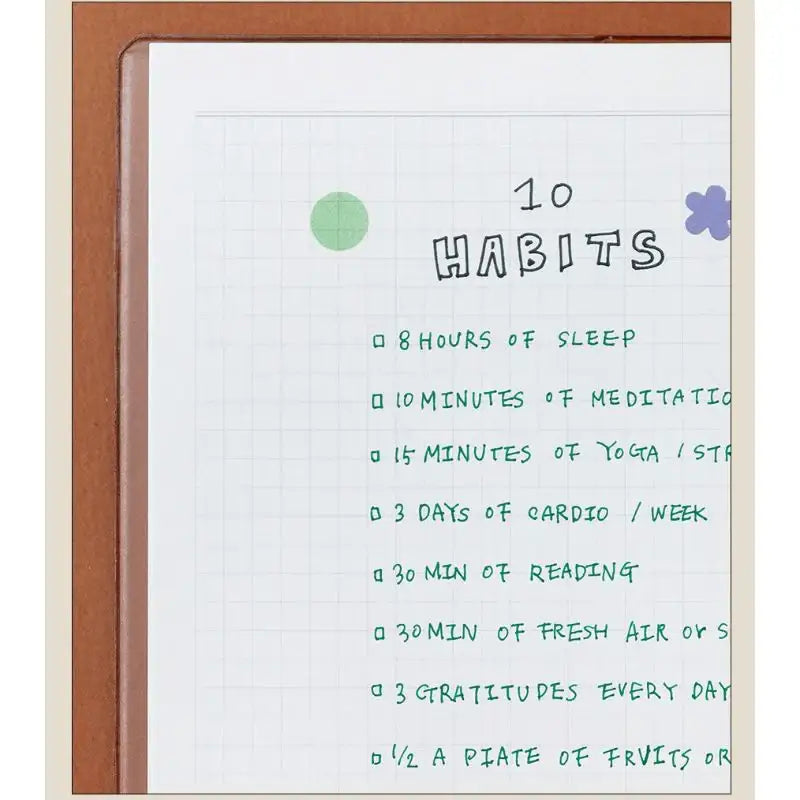 10
HABITS
8 HOURS OF SLEEP
10 MINUTES OF MEDITATIO
15 MINUTES OF YOGA / STR
3 DAYS OF CARDIO / WEEK
30 MIN OF READING
30 MIN OF FRESH AIR or S
3 GRATITUDES EVERY DAY
1/2 A PIATE OF FRUITS OR